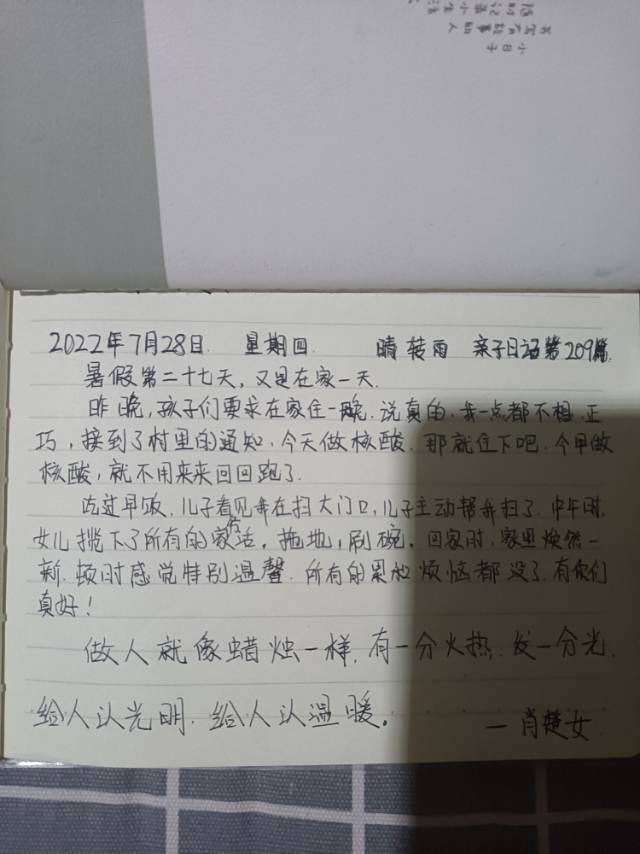 小日子
书写有故事的人
随时记录小生活
2022年7月28日. 星期四. 晴转雨 亲子日记第209篇.
暑假第二十七天,又是在家一天.
昨晚,孩子们要求在家住一晚.说真的,我一点都不想.正
巧,接到了村里的通知.今天做核酸.那就住下吧.今早做
核酸,就不用来来回回跑了.
吃过早饭,儿子看见我在扫大门口,儿子主动帮我扫了.中午时,
女儿揽下了所有的家务活,拖地,刷碗.回家时,家里焕然一
新.顿时感觉特别温馨.所有的累和烦恼都没了.有你们
真好!
做人就像蜡烛一样.有一分火热.发一分光.
给人以光明.给人以温暖。 —肖楚女